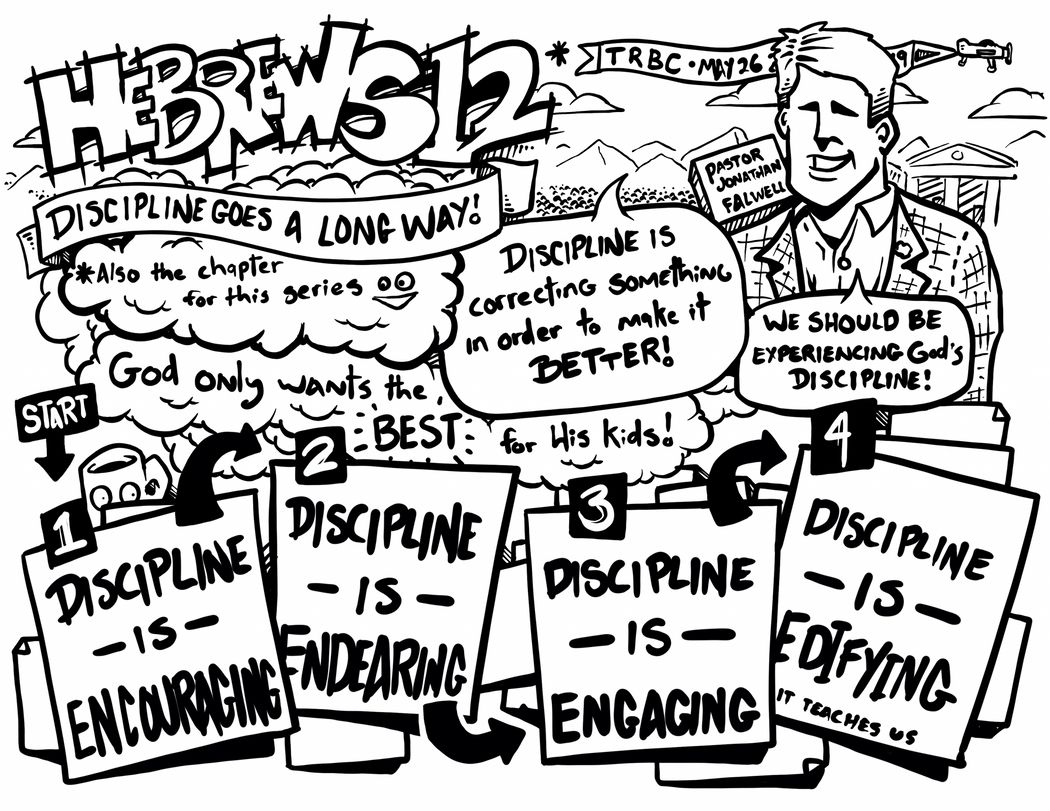 HEBREWS 12
* TRBC • MAY 26 9
PASTOR
JONATHAN
FALWELL
DISCIPLINE GOES A LONG WAY!
*Also the chapter
for this series
DISCIPLINE IS
correcting something
in order to make it
BETTER!
WE SHOULD BE
EXPERIENCING God's
DISCIPLINE!
God only wants the
BEST
for His kids!
START
1
DISCIPLINE
- IS -
ENCOURAGING
2
DISCIPLINE
- IS -
ENDEARING
3
DISCIPLINE
- IS -
ENGAGING
4
DISCIPLINE
- IS -
EDIFYING
IT TEACHES US